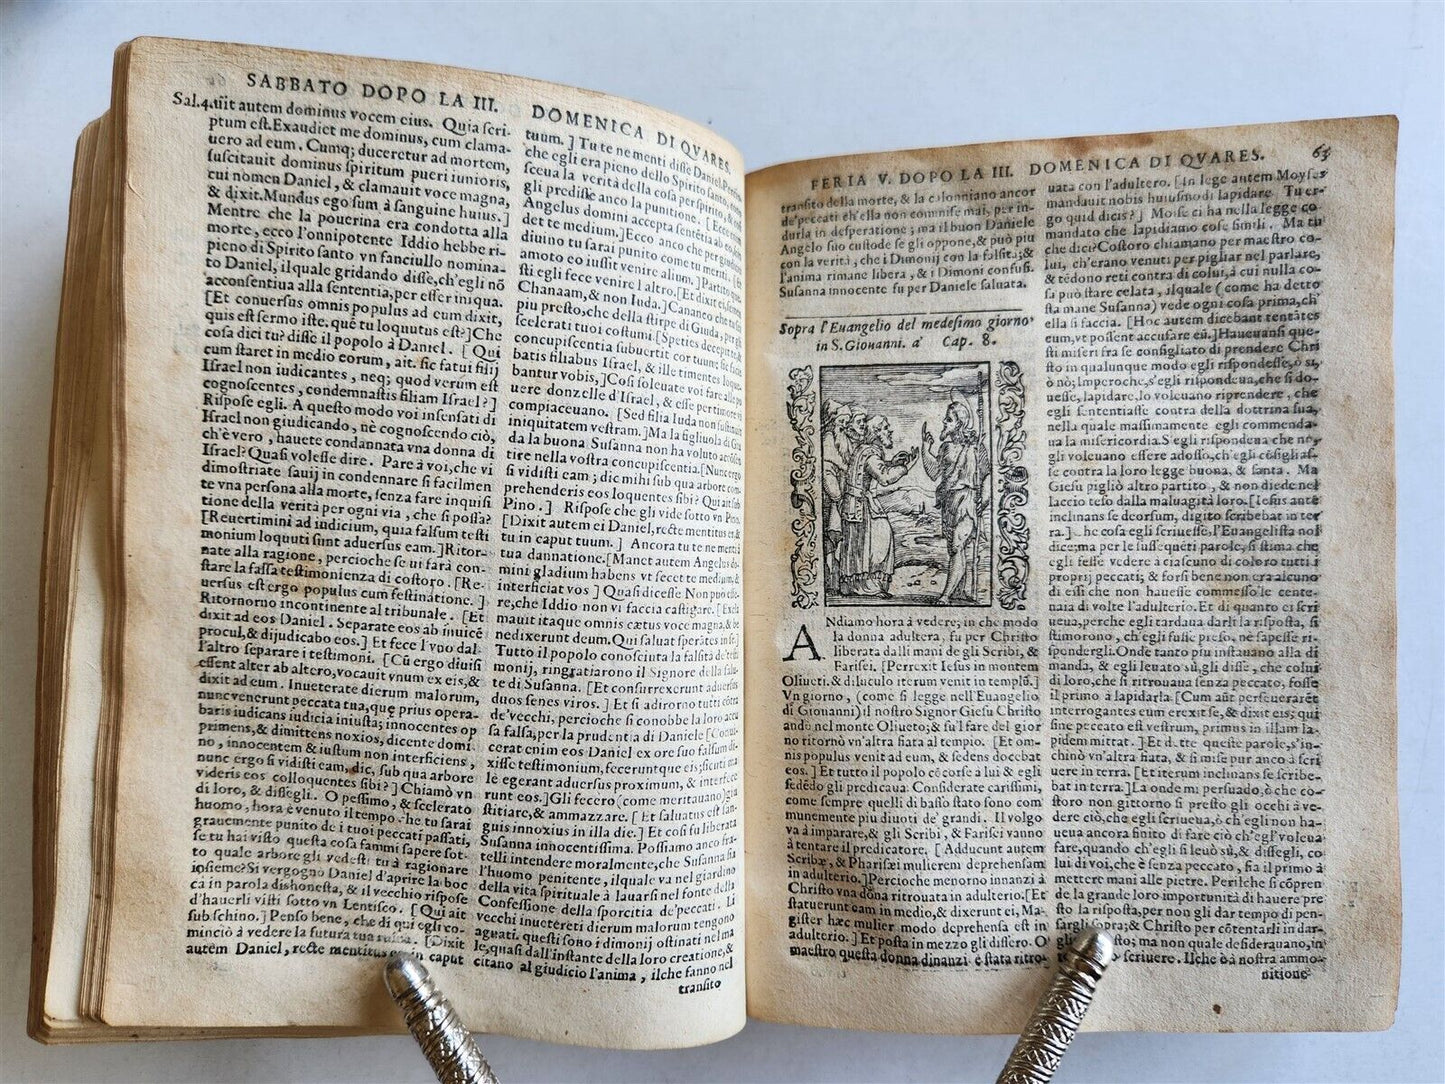 SABBATO DOPO LA III.
Sal.4. uit autem dominus vocem eius. Quia scri-
ptum est. Exaudiet me dominus, cum clama-
uero ad eum. Cumq; duceretur ad mortem,
suscitauit dominus spiritum pueri iunioris,
cui nomen Daniel, & clamauit voce magna,
& dixit. Mundus ego sum à sanguine huius.]
Mentre che la pouerina era condotta alla
morte, ecco l'onnipotente Iddio hebbe ri-
pieno di Spirito santo vn fanciullo nomina-
to Daniel, ilquale gridando disse, ch'egli nō
acconsentiua alla sententia, per esser iniqua.
[Et conuersus omnis populus ad eum dixit,
quis est sermo iste. quē tu loquutus est?] Che
cosa dici tu? disse il popolo à Daniel. [Qui
cum staret in medio eorum, ait. sic fatui filij
Israel non iudicantes, neq; quod verum est
cognoscentes, condemnastis filiam Israel?]
Rispose egli. A questo modo voi insensati di
Israel non giudicando, nè cognoscendo ciò,
ch'è vero, hauete condannata vna donna di
Israel? Quasi volesse dire. Pare à voi, che vi
dimostriate sauij in condennare sì facilmen
te vna persona alla morte, senza fare inquisi
tione della verità per ogni via, che si possa?
[Reuertimini ad iudicium, quia falsum testi
monium loquuti sunt aduersus eam.] Ritor-
nate alla ragione, percioche se ui farà con-
stare la falsa testimonienza di costoro. [Re-
uersus est ergo populus cum festinatione.]
Ritornorno incontinente al tribunale. [Et
dixit ad eos Daniel. Separate eos ab inuicē
procul, & dijudicabo eos.] Et fece l'vno dal-
l'altro separare i testimoni. [Cū ergo diuisi
essent alter ab altero, vocauit vnum ex eis, &
dixit ad eum. Inueterate dierum malorum,
nunc venerunt peccata tua, quę prius opera-
baris iudicans iudicia iniusta; innocentes op
primens, & dimittens noxios, dicente domi-
no, innocentem & iustum non interficiens,
nunc ergo si vidisti eam, dic, sub qua arbore
videris eos colloquentes sibi?] Chiamò vn
di loro, & dissegli. O pessimo, & scelerato
huomo, hora è venuto il tempo che tu sarai
grauemente punito de i tuoi peccati passati,
se tu hai visto questa cosa fammi sapere sot-
to quale arbore gli vedesti tu à ragionare
insieme? Si vergogno Daniel d'aprire la boc
ca in parola dishonesta, & il vecchio rispose
d'hauerli visti sotto vn Lentisco. [Qui ait
sub schino.] Penso bene, che di qui egli co-
minciò à vedere la futura tua ruina. [Dixit
autem Daniel, recte mentitus es in caput
DOMENICA DI QVARES.
tuum.] Tu te ne menti disse Daniel.
che egli era pieno dello Spirito santo,
sceua la verità della cosa per spirito, & così
gli predisse anco la punitione. [Ecce
Angelus domini accepta sentētia ab eo,
det te medium.] Ecco anco che per giudicio
diuino tu sarai punito come tu meriti. [Et
amoto eo iussit venire alium.] Partito
sti egli fece venire l'altro. [Et dixit ei, semen
Chanaam, & non Iuda.] Cananeo che tu sia
piu presto, che della stirpe di Giuda, per gli
scelerati tuoi costumi. [Species decepit te, &
concupiscentia subuertit cor tuum; sic
batis filiabus Israel, & ille timentes loque-
bantur vobis,] Così soleuate voi fare alle po
uere donzelle d'Israel, & esse per timore vi
compiaceuano. [Sed filia Iuda non sustinuit
iniquitatem vestram.] Ma la figliuola di Giu
da la buona Susanna non ha voluto acconsen
tire nella vostra concupiscentia. [Nunc ergo
si vidisti eam; dic mihi sub qua arbore com
prehenderis eos loquentes sibi? Qui ait sub
Pino.] Rispose che gli vide sotto vn Pino.
[Dixit autem ei Daniel, recte mentitus es &
tu in caput tuum.] Ancora tu te ne menti à
tua dannatione. [Manet autem Angelus do-
mini gladium habens vt secet te medium, &
interficiat vos] Quasi dicesse Non può esse-
re, che Iddio non vi faccia castigare. [Excla
mauit itaque omnis cætus voce magna, & be
nedixerunt deum. Qui saluat sperātes in se.]
Tutto il popolo conosciuta la falsità de' testi
monij, ringratiarono il Signore della salu-
te di Susanna. [Et consurrexerunt aduersus
duos senes viros.] Et si adirorno tutti cōtra
de' vecchi, percioche si conobbe la loro accu
sa falsa, per la prudentia di Daniele [Conui-
cerat enim eos Daniel ex ore suo falsum di-
xisse testimonium, feceruntque eis; sicuti ma
le egerant aduersus proximum, & interfece
runt eos.] Gli fecero (come meritauano) giu
stitiare, & ammazzare. [Et saluatus est san-
guis innoxius in illa die.] Et così fu liberata
Susanna innocentissima. Possiamo anco fra-
telli intendere moralmente, che Susanna sia
l'huomo penitente, ilquale va nel giardino
della vita spirituale à lauarsi nel fonte della
Confessione della sporcitia de' peccati. Li
vecchi inuetereti dierum malorum tengono
aguati. questi sono i dimonij ostinati nel ma
le, quasi dall'instante della loro creatione, &
citano al giudicio l'anima, ilche fanno nel
transito
FERIA V. DOPO LA III. DOMENICA DI QVARES. 63
transito della morte, & la calonniano ancor
de' peccati ch'ella non commise mai, per in-
durla in desperatione; ma il buon Daniele
Angelo suo custode se gli oppone, & può piu
con la verità, che i Dimonij con la falsità; &
l'anima rimane libera, & i Dimoni confusi.
Susanna innocente fu per Daniele saluata.
Sopra l'Euangelio del medesimo giorno
in S. Giouanni. a' Cap. 8.
ANdiamo hora à vedere; in che modo
la donna adultera, fu per Christo
liberata dalli mani de gli Scribi, &
Farisei. [Perrexit Iesus in montem
Oliueti. & diluculo iterum venit in templū.]
Vn giorno, (come si legge nell'Euangelio
di Giouanni) il nostro Signor Giesu Christo
andò nel monte Oliueto; & su'l fare del gior
no ritornò vn'altra fiata al tempio. [Et om-
nis populus venit ad eum, & sedens docebat
eos.] Et tutto il popolo cōcorse a lui & egli
sedēdo gli predicaua. Considerate carissimi,
come sempre quelli di basso stato sono com
munemente piu diuoti de' grandi. Il volgo
va à imparare, & gli Scribi, & Farisei vanno
à tentare il predicatore. [Adducunt autem
Scribæ, & Pharisæi mulierem deprehensam
in adulterio.] Percioche menorno innanzi à
Christo vna dōna ritrouata in adulterio. [Et
statuerunt eam in medio, & dixerunt ei, Ma-
gister hæc mulier modo deprehensa est in
adulterio.] Et posta in mezzo gli dissero. O
maestro questa donna dinanzi è stata ritro-
uata con l'adultero. [In lege autem Moyses
mandauit nobis huiusmodi lapidare Tu er-
go quid dicis?] Moise ci ha nella legge co-
mandato che lapidiamo cose simili. Ma tu
che dici? Costoro chiamano per maestro co-
lui, ch'erano venuti per pigliar nel parlare,
& tēdono reti contra di colui, à cui nulla co-
sa può stare celata, ilquale (come ha detto
sta mane Susanna) vede ogni cosa prima, ch'
ella si faccia. [Hoc autem dicebant tentātes
eum, vt possent accusare eū.] Haueuansi que-
sti miseri fra se consigliato di prendere Chri
sto in qualunque modo egli rispondesse, ò sì,
ò nò; Imperoche, s'egli rispondeua, che si do-
uesse, lapidare, lo voleuano riprendere, che
egli sententiasse contra della dottrina sua,
nella quale massimamente egli commenda-
ua la misericordia. S'egli rispondeua che nò,
gli voleuano essere adosso, ch'egli cōsigliaf-
se contra la loro legge buona, & santa. Ma
Giesu pigliò altro partito, & non diede nel
laccio teso dalla maluagità loro. [Iesus autē
inclinans se deorsum, digito scribebat in ter
ra.] che cosa egli scriuesse, l'Euangelista nol
dice; ma per le sussequēti parole, si stima che
egli fesse vedere à ciascuno di coloro tutti i
proprij peccati; & forsi bene non era alcuno
di essi che non hauesse commesso le cente-
naia di volte l'adulterio. Et di quanto ei scri
ueua, perche egli tardaua darli la risposta, si
stimorono, ch'egli fusse preso, nè sapesse ri-
spondergli. Onde tanto piu instauano alla di
manda, & egli leuato sù, gli disse, che colui
di loro, che si ritrouaua senza peccato, fosse
il primo à lapidarla. [Cum autē perseuerarēt
interrogantes eum erexit se, & dixit eis; qui
sine peccato est vestrum, primus in illam la-
pidem mittat.] Et dette queste parole, s'in-
chinò vn'altra fiata, & si mise pur anco à scri
uere in terra. [Et iterum inclinans se scribe-
bat in terra.] La onde mi persuado, ò che co-
storo non gittorno si presto gli occhi à ve-
dere ciò, che egli scriueua, ò ch'egli non ha-
ueua ancora finito di fare ciò ch'egl' voleua
fare, quando ch'egli si leuò sù, & dissegli, co
lui di voi, che è senza peccato, sia il primo à
mettere mani alle pietre. Perilche si cōpren
de la grande loro importunità di hauere pre
sto la risposta, per non gli dar tempo di pen-
sargli sopra; & Christo per cōtentarli in dar-
gliela presto; ma non quale desiderauano, in
scriuere. Ilche è à nostra ammo-
nitione